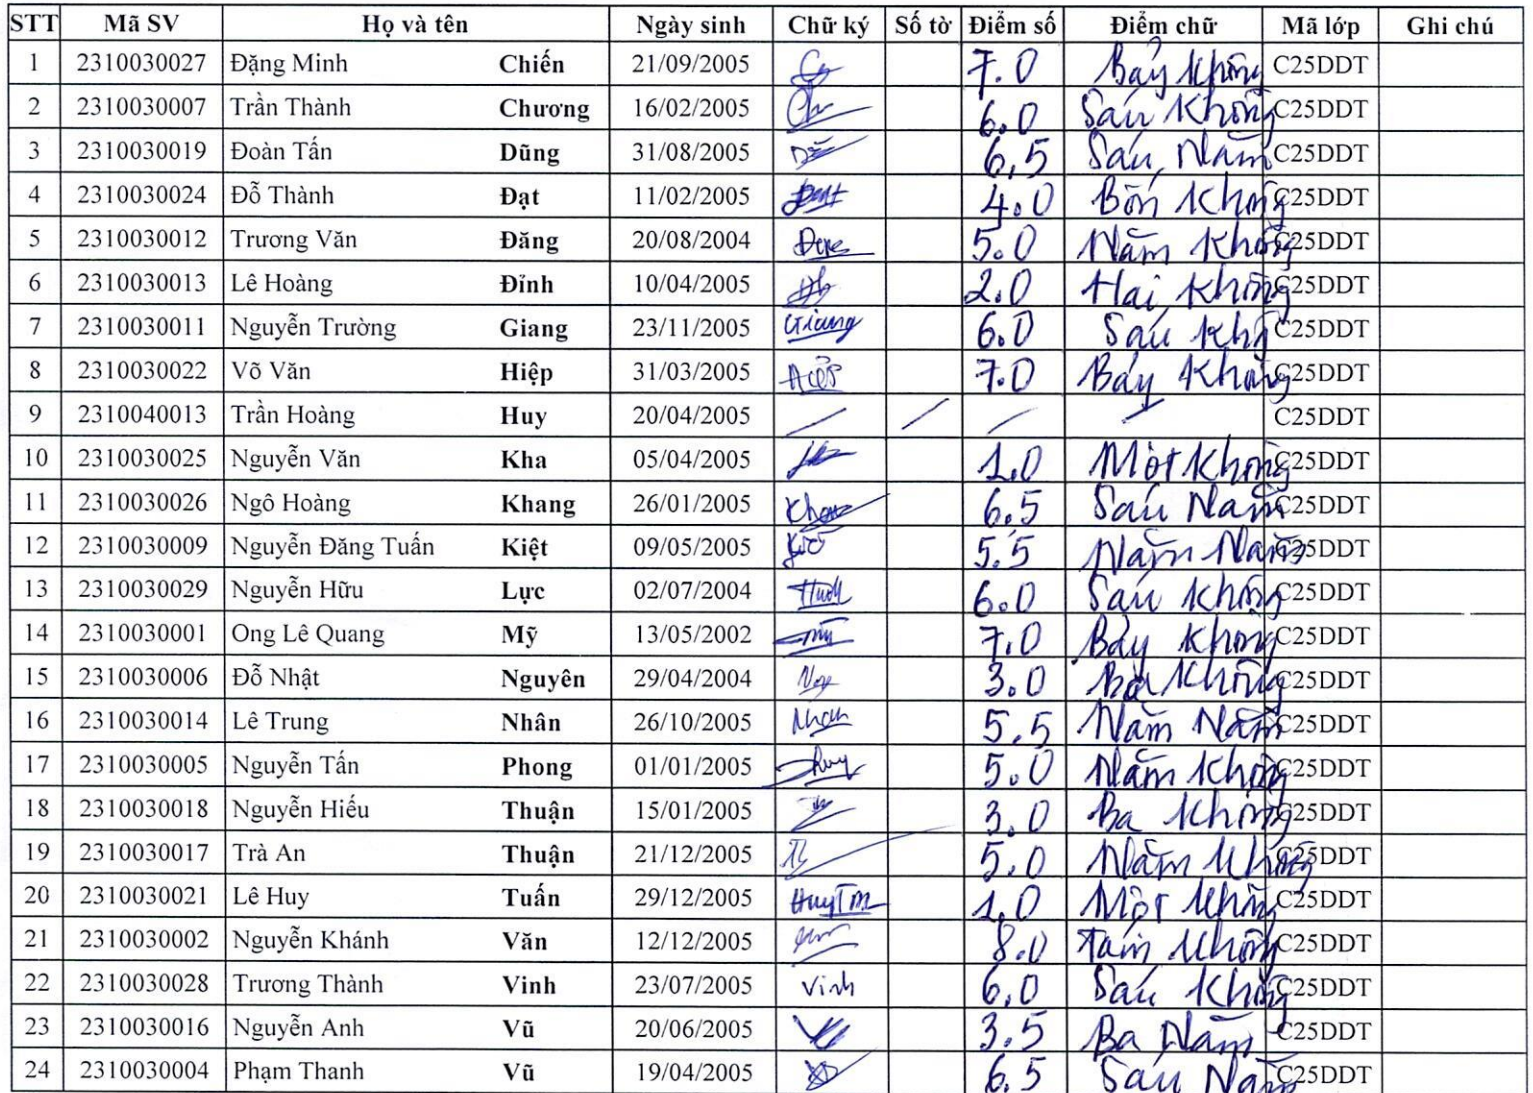 STT Mã SV Họ và tên Ngày sinh Chữ ký Số tờ Điểm số Điểm chữ Mã lớp Ghi chú
1 2310030027 Đặng Minh Chiến 21/09/2005 7.0 Bảy Không C25DDT
2 2310030007 Trần Thành Chương 16/02/2005 6.0 Sáu Không C25DDT
3 2310030019 Đoàn Tấn Dũng 31/08/2005 6,5 Sáu, Năm C25DDT
4 2310030024 Đỗ Thành Đạt 11/02/2005 4.0 Bốn Không C25DDT
5 2310030012 Trương Văn Đăng 20/08/2004 5.0 Năm Không C25DDT
6 2310030013 Lê Hoàng Đỉnh 10/04/2005 2.0 Hai Không C25DDT
7 2310030011 Nguyễn Trường Giang 23/11/2005 Giang 6.0 Sáu Khg C25DDT
8 2310030022 Võ Văn Hiệp 31/03/2005 7.0 Bảy Không C25DDT
9 2310040013 Trần Hoàng Huy 20/04/2005 / / / / C25DDT
10 2310030025 Nguyễn Văn Kha 05/04/2005 1.0 Một Không C25DDT
11 2310030026 Ngô Hoàng Khang 26/01/2005 6.5 Sáu Năm C25DDT
12 2310030009 Nguyễn Đăng Tuấn Kiệt 09/05/2005 5.5 Năm Năm C25DDT
13 2310030029 Nguyễn Hữu Lực 02/07/2004 6.0 Sáu Không C25DDT
14 2310030001 Ong Lê Quang Mỹ 13/05/2002 7.0 Bảy Không C25DDT
15 2310030006 Đỗ Nhật Nguyên 29/04/2004 3.0 Ba Không C25DDT
16 2310030014 Lê Trung Nhân 26/10/2005 5.5 Năm Năm C25DDT
17 2310030005 Nguyễn Tấn Phong 01/01/2005 5.0 Năm Không C25DDT
18 2310030018 Nguyễn Hiếu Thuận 15/01/2005 3.0 Ba Không C25DDT
19 2310030017 Trà An Thuận 21/12/2005 5.0 Năm Không C25DDT
20 2310030021 Lê Huy Tuấn 29/12/2005 1.0 Một Không C25DDT
21 2310030002 Nguyễn Khánh Văn 12/12/2005 8.0 Tám Không C25DDT
22 2310030028 Trương Thành Vinh 23/07/2005 Vinh 6.0 Sáu Không C25DDT
23 2310030016 Nguyễn Anh Vũ 20/06/2005 3.5 Ba Năm C25DDT
24 2310030004 Phạm Thanh Vũ 19/04/2005 6.5 Sáu Năm C25DDT